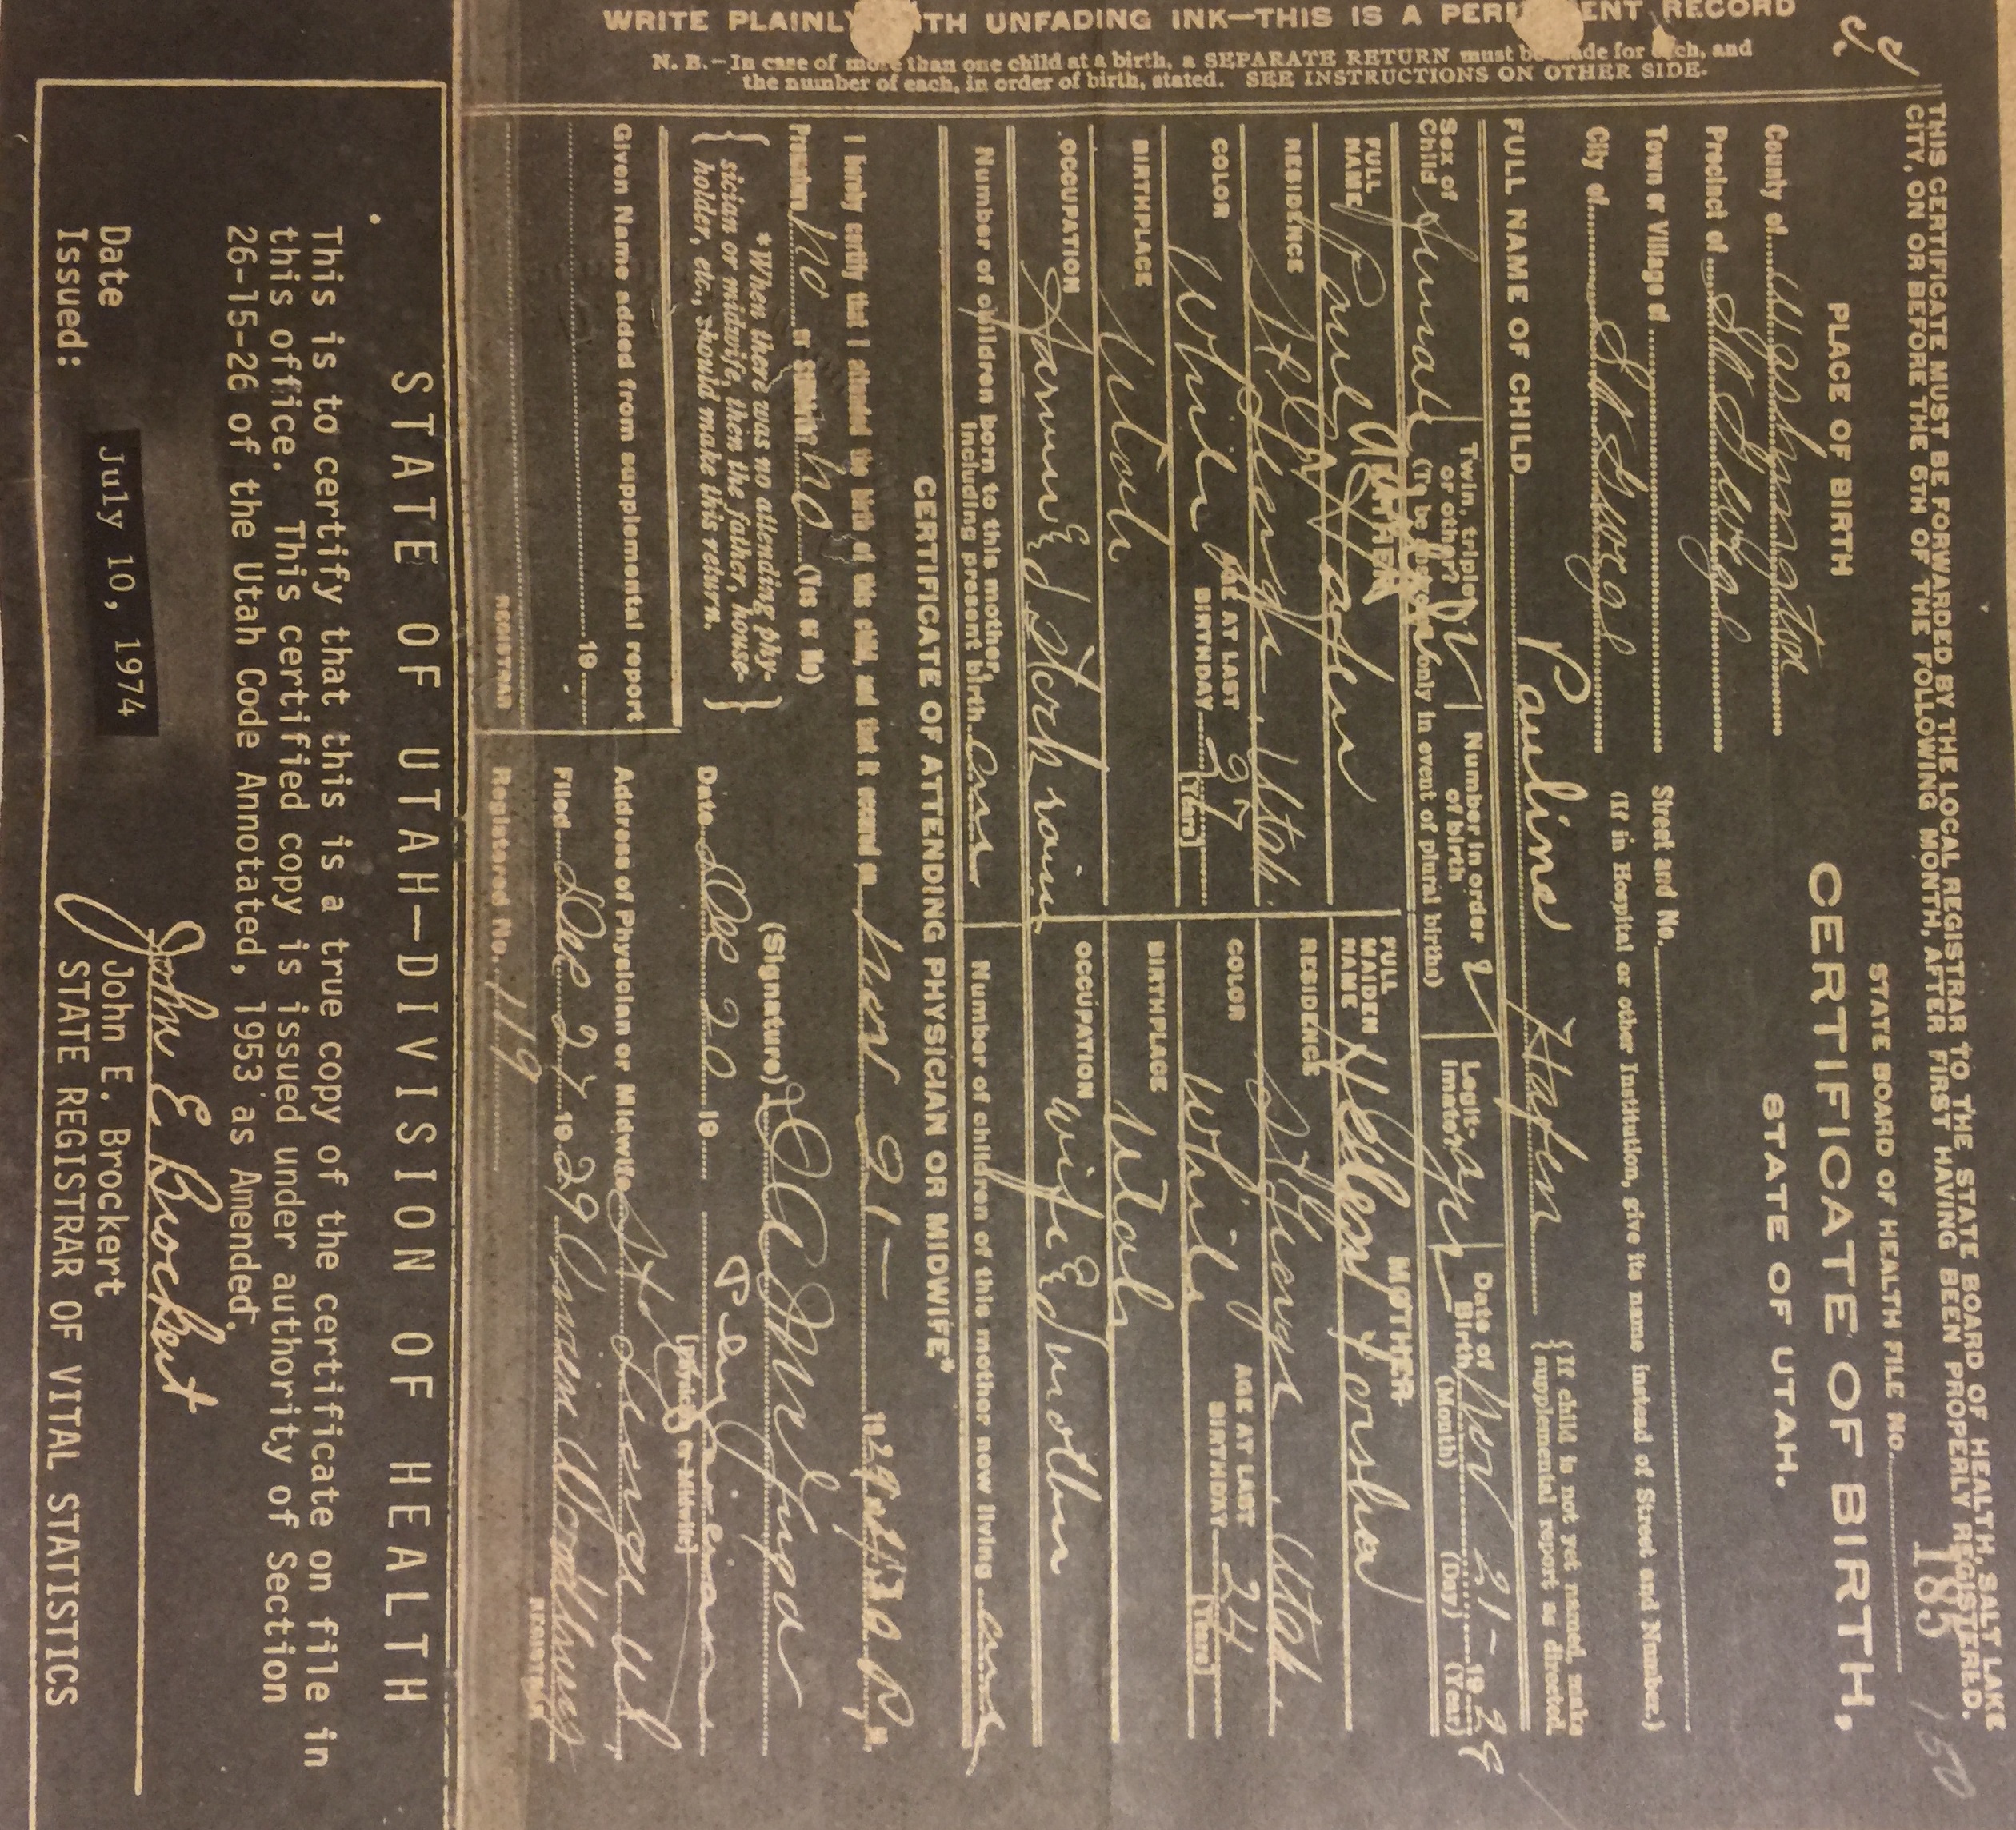 WRITE PLAINLY WITH UNFADING INK—THIS IS A PERMANENT RECORD
N. B.—In case of more than one child at a birth, a SEPARATE RETURN must be made for each, and
the number of each, in order of birth, stated. SEE INSTRUCTIONS ON OTHER SIDE.
THIS CERTIFICATE MUST BE FORWARDED BY THE LOCAL REGISTRAR TO THE STATE BOARD OF HEALTH, SALT LAKE
CITY, ON OR BEFORE THE 5TH OF THE FOLLOWING MONTH, AFTER FIRST HAVING BEEN PROPERLY REGISTERED.
185
150
STATE BOARD OF HEALTH FILE No.
PLACE OF BIRTH
CERTIFICATE OF BIRTH,
STATE OF UTAH.
County of Washington
Precinct of St George
Town or Village of
Street and No.
City of St George
(If in Hospital or other Institution, give its name instead of Street and Number.)
FULL NAME OF CHILD Pauline Hafen
{If child is not yet named, make
supplemental report as directed.
Sex of Child Female
Twin, triplet or other?
Number in order of birth 2
(To be answered only in event of plural births)
Legitimate? yes
Date of Birth Nov 21- 1928
(Month) (Day) (Year)
FATHER
MOTHER
FULL NAME Paul Hafen
FULL MAIDEN NAME Hellen Forsha
RESIDENCE St George Utah
RESIDENCE St George Utah
COLOR White AGE AT LAST BIRTHDAY 37 (Years)
COLOR White AGE AT LAST BIRTHDAY 24 (Years)
BIRTHPLACE Utah
BIRTHPLACE Utah
OCCUPATION Farmer & Stock raiser
OCCUPATION Wife & mother
Number of children born to this mother, including present birth
Number of children of this mother now living
CERTIFICATE OF ATTENDING PHYSICIAN OR MIDWIFE*
I hereby certify that I attended the birth of this child, and that it occurred on Nov 21- 1929 at
Premature no or Stillbirth? no (Yes or No)
{ *When there was no attending phy-
sician or midwife, then the father, house-
holder, etc., should make this return. }
(Signature)
Physician
(Physician or Midwife)
Date Dec 20 19
Given Name added from supplemental report
Address of Physician or Midwife St George Ut
19
Filed Dec 27 1929
REGISTRAR
REGISTRAR
Registered No. 119
STATE OF UTAH—DIVISION OF HEALTH
This is to certify that this is a true copy of the certificate on file in
this office. This certified copy is issued under authority of Section
26-15-26 of the Utah Code Annotated, 1953 as Amended.
John E Brockert
Date
Issued:
July 10, 1974
John E. Brockert
STATE REGISTRAR OF VITAL STATISTICS